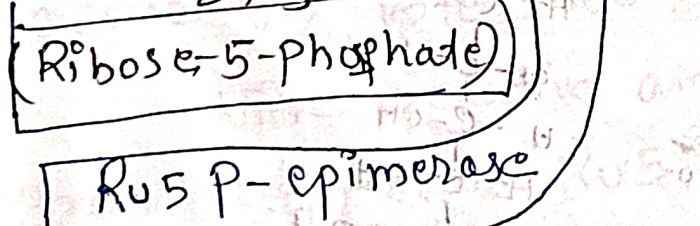 (Ribose-5-Phosphate)
Ru5P-epimerase